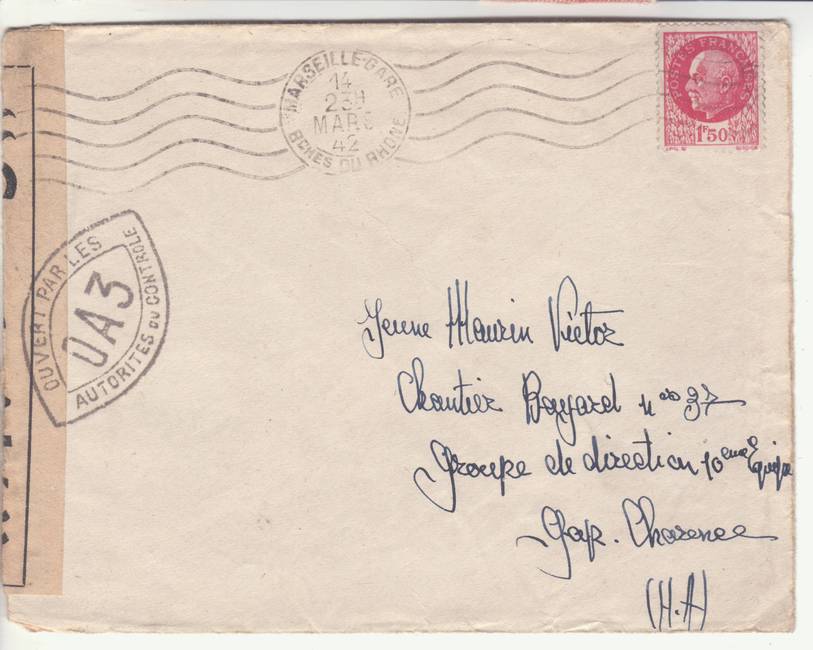 MARSEILLE-GARE
14
23H
MARS
42
BCHES DU RHONE
POSTES FRANÇAISES
1F50
OUVERT PAR LES
UA3
AUTORITÉS DU CONTROLE
Jeune Maurin Victor
Chantier Bayard n° 37
Groupe de direction 10eme Equipe
Gap. Charence
(H.A)